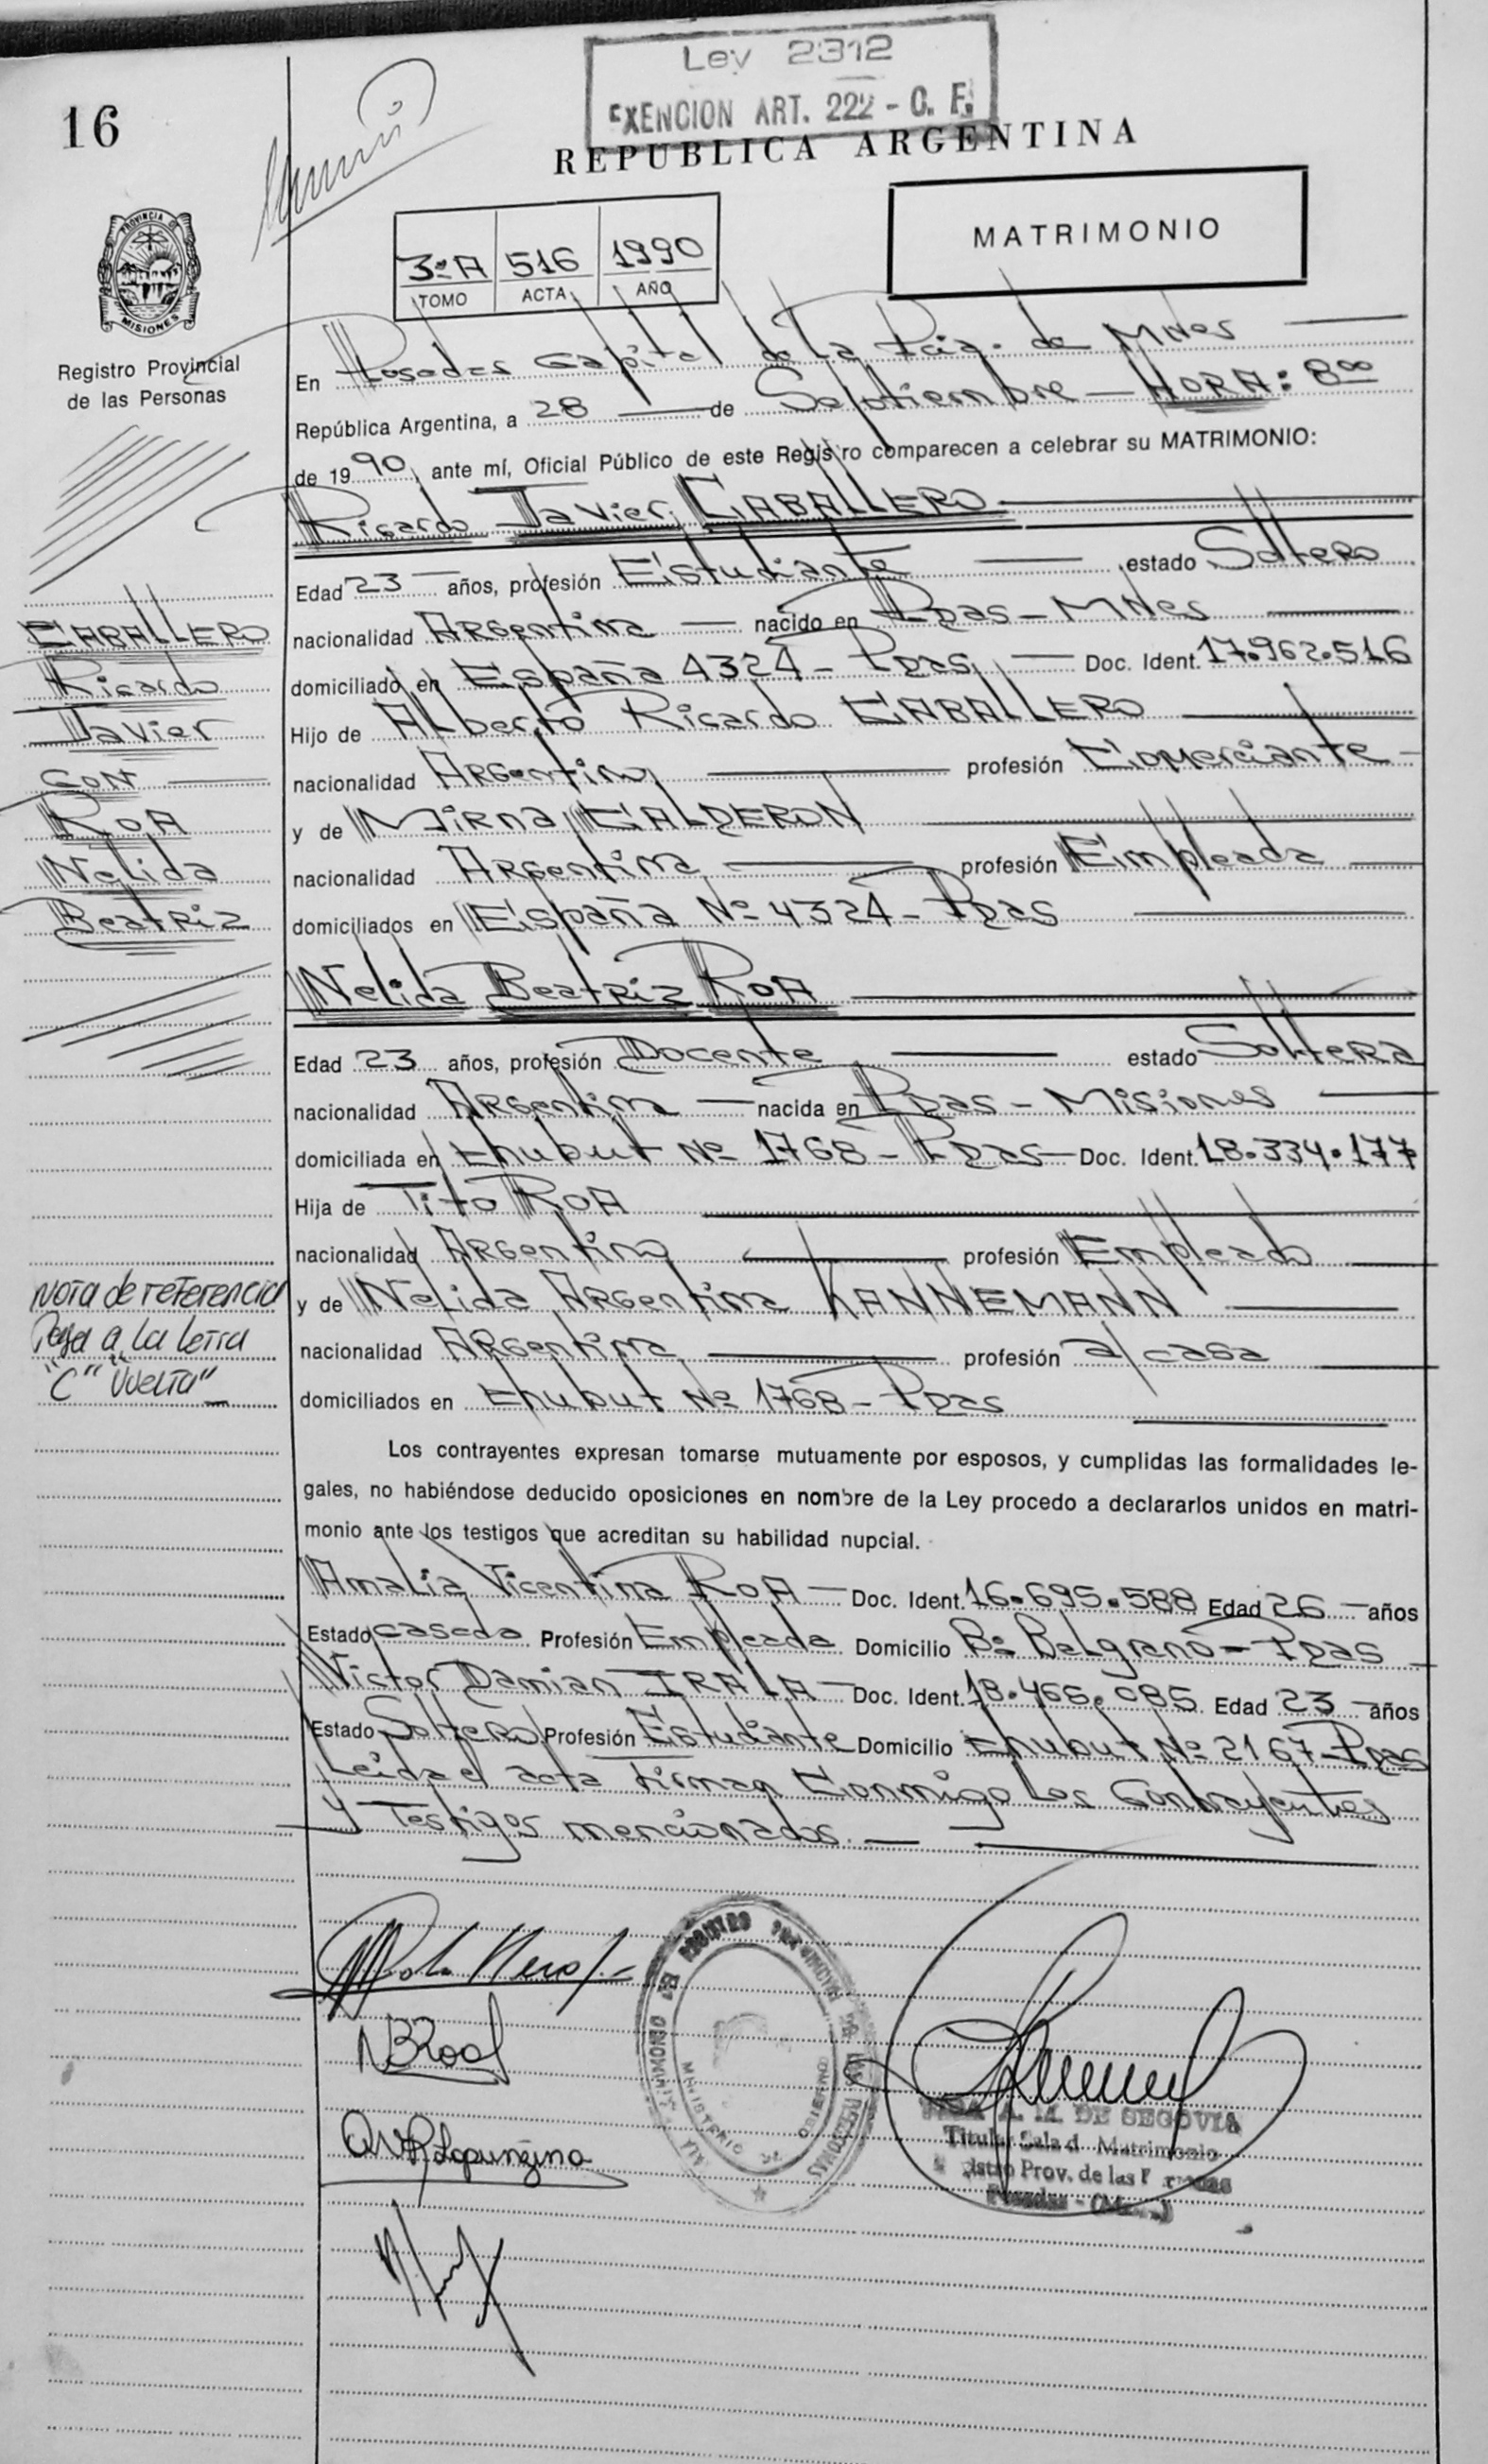 Ley 2312
EXENCION ART. 222 - C. F.
16
REPUBLICA ARGENTINA
MATRIMONIO
3ºA 516 1990
TOMO ACTA AÑO
PROVINCIA DE
MISIONES
Registro Provincial
de las Personas
En Posadas Capital de la Pcia. de Mnes
República Argentina, a 28 de Septiembre - HORA: 8ºº
de 1990, ante mí, Oficial Público de este Registro comparecen a celebrar su MATRIMONIO:
Ricardo Javier CABALLERO
Edad 23 años, profesión Estudiante estado Soltero
nacionalidad Argentina nacido en Pdas - Mnes
domiciliado en España 4324 - Pdas. Doc. Ident. 17.962.516
Hijo de Alberto Ricardo CABALLERO
nacionalidad Argentino profesión Comerciante
y de Mirna CALDERON
nacionalidad Argentina profesión Empleada
domiciliados en España Nº 4324 - Pdas
CABALLERO
Ricardo
Javier
CON
ROA
Nelida
Beatriz
Nelida Beatriz ROA
Edad 23 años, profesión Docente estado Soltera
nacionalidad Argentina nacida en Pdas - Misiones
domiciliada en Chubut Nº 1768 - Pdas Doc. Ident. 18.334.177
Hija de Tito ROA
nacionalidad Argentino profesión Empleado
y de Nelida Argentina KANNEMANN
nacionalidad Argentina profesión a/casa
domiciliados en Chubut Nº 1768 - Pdas
Nota de referencia
Pasa a la letra
"C" "Vuelta"
Los contrayentes expresan tomarse mutuamente por esposos, y cumplidas las formalidades le-
gales, no habiéndose deducido oposiciones en nombre de la Ley procedo a declararlos unidos en matri-
monio ante los testigos que acreditan su habilidad nupcial.
Amalia Vicentina ROA Doc. Ident. 16.695.588 Edad 26 años
Estado casada Profesión Empleada Domicilio Bº Belgrano - Pdas
Victor Damian IRALA Doc. Ident. 18.465.085 Edad 23 años
Estado Soltero Profesión Estudiante Domicilio Chubut Nº 2167 - Pdas
Leida el acta firman Conmigo los Contrayentes
y Testigos mencionados.
NBRoa
MINISTERIO DE GOBIERNO
A. M. DE SEGOVIA
Titular Sala d Matrimonio
Prov. de las
Posadas